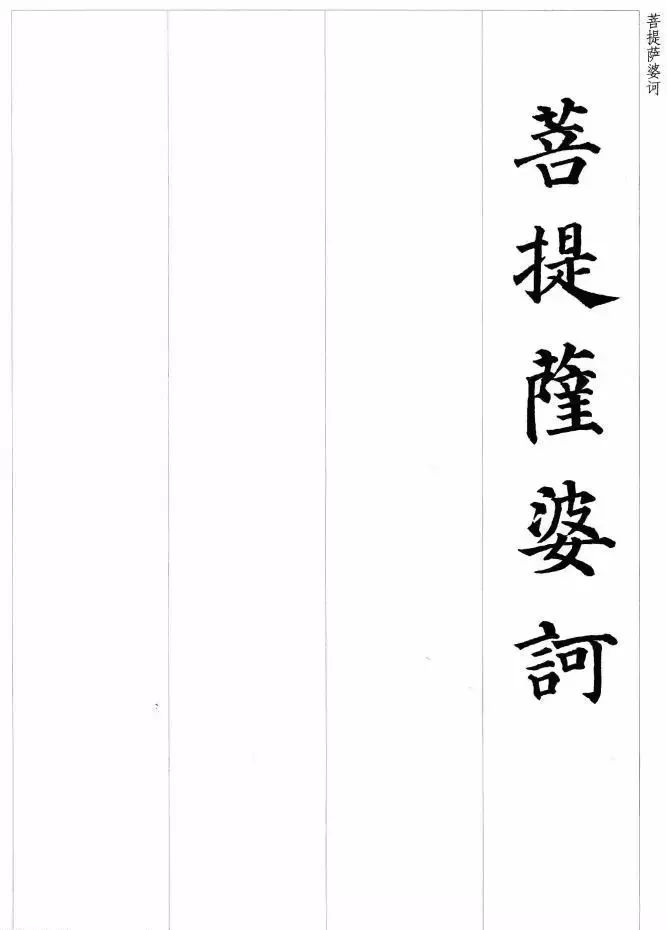 菩提萨婆诃
菩提薩婆訶